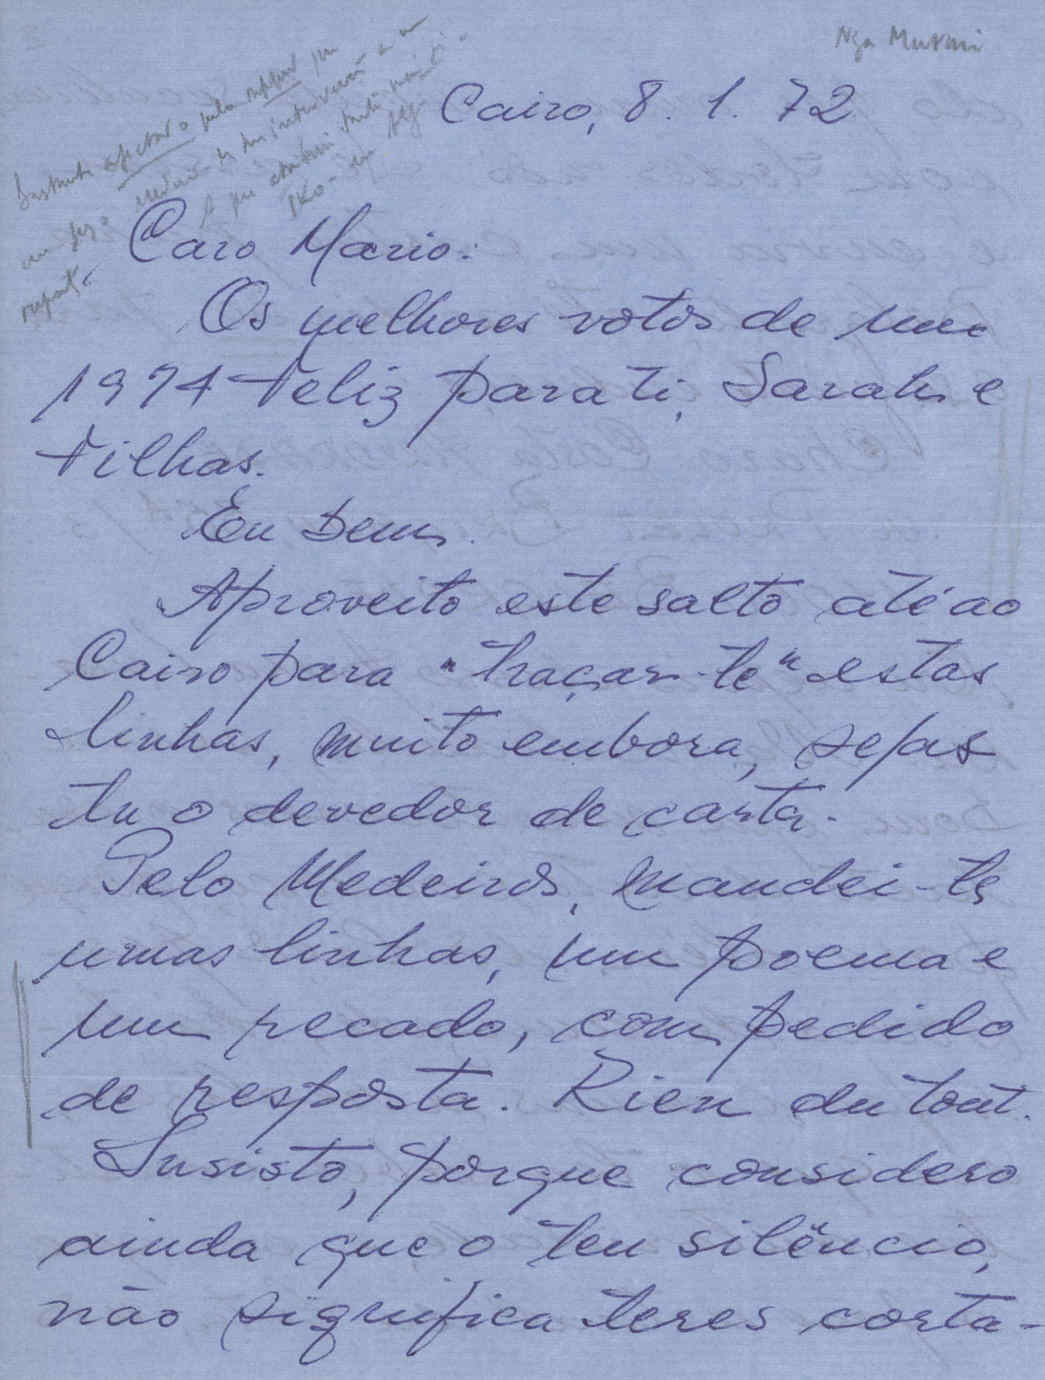 Nga Muturi
Cairo, 8. 1. 72
Caro Mario:
Os melhores votos de um
1974 feliz para ti, Sarah e
filhas.
Eu bem.
Aproveito este salto até ao
Cairo para "traçar-te" estas
linhas, muito embora, sejas
tu o devedor de carta.
Pelo Medeiros, mandei-te
umas linhas, um poema e
um recado, com pedido
de resposta. Rien du tout.
Insisto, porque considero
ainda que o teu silêncio,
não significa teres corta-